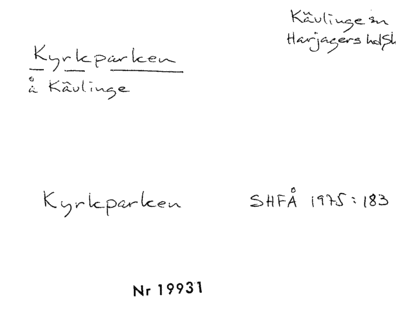 Kävlinge sn
Harjagers hd Sk
Kyrkparken
å Kävlinge
Kyrkparken
SHFÅ 1975:183
Nr 19931